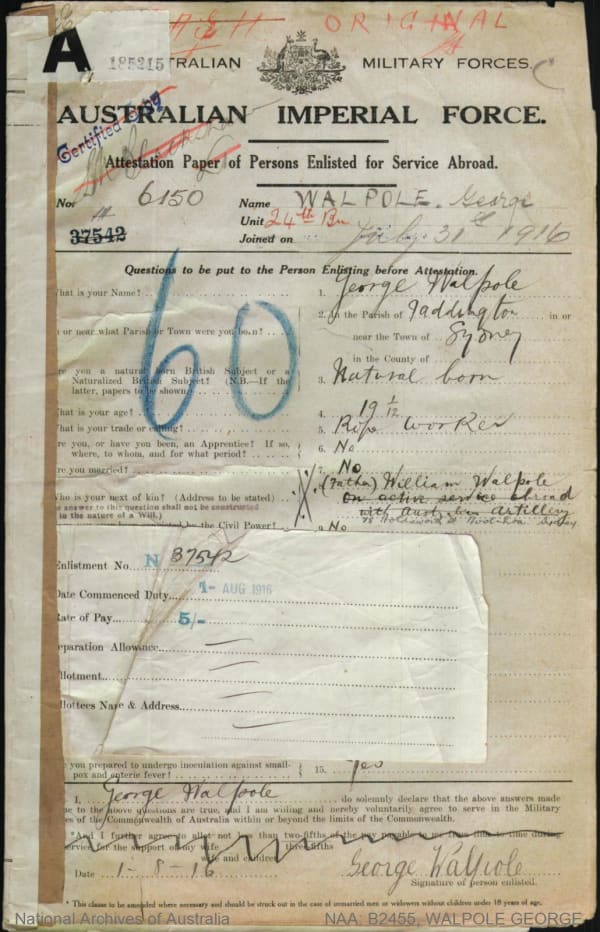 ORIGINAL
A
185215
TRALIAN MILITARY FORCES.
AUSTRALIAN IMPERIAL FORCE.
Certified Copy
Attestation Paper of Persons Enlisted for Service Abroad.
No. 6150 Name WALPOLE. George
37542 Unit 24th Bn
Joined on July 31st 1916
Questions to be put to the Person Enlisting before Attestation.
hat is your Name? 1. George Walpole
or near what Parish or Town were you born? 2. In the Parish of Paddington in or
near the Town of Sydney
in the County of
re you a natural born British Subject or a
Naturalized British Subject? (N.B.—If the
latter, papers to be shown) 3. Natural born
hat is your age? 4. 19 1/12
hat is your trade or calling? 5. Rope worker
re you, or have you been, an Apprentice? If so,
where, to whom, and for what period? 6. No
re you married? 7. No
ho is your next of kin? (Address to be stated) (Father) William Walpole
e answer to this question shall not be constructed
in the nature of a Will.)
on active service abroad
with Australian artillery
Sydney
by the Civil Power? 9. No
60
Enlistment No. N 37542
Date Commenced Duty 1- AUG 1916
Rate of Pay 5/-
eparation Allowance
llotment
llottees Name & Address
e you prepared to undergo inoculation against small-
pox and enteric fever? 15. Yes
I, George Walpole do solemnly declare that the above answers made
me to the above questions are true, and I am willing and hereby voluntarily agree to serve in the Military
es of the Commonwealth of Australia within or beyond the limits of the Commonwealth.
*And I further agree to allot not less than two-fifths of the pay payable to me from time to time during
ervice for the support of my wife three-fifths
wife and children
Date 1-8-16 George Walpole
Signature of person enlisted.
* This clause to be amended where necessary and should be struck out in the case of unmarried men or widowers without children under 18 years of age.
National Archives of Australia NAA: B2455, WALPOLE GEORGE